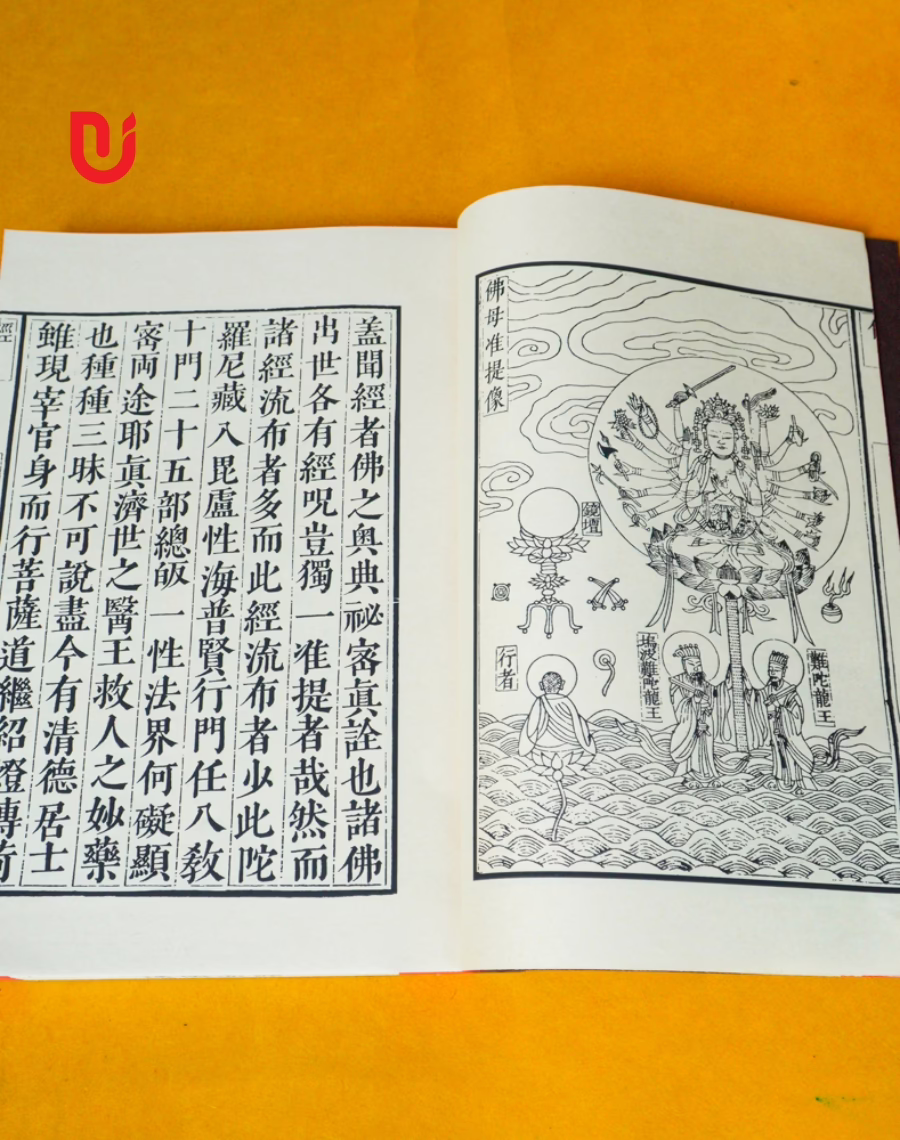 佛母准提像
鏡壇
難陀龍王
塢波難陀龍王
行者
盖聞經者佛之奥典祕宻眞詮也諸佛
出世各有經呪豈獨一准提者哉然而
諸經流布者多而此經流布者少此陀
羅尼藏入毘盧性海普賢行門任八教
十門二十五部總皈一性法界何礙顯
宻両途耶眞濟世之醫王救人之妙藥
也種種三昧不可說盡今有清德居士
雖現宰官身而行菩薩道繼紹燈傳